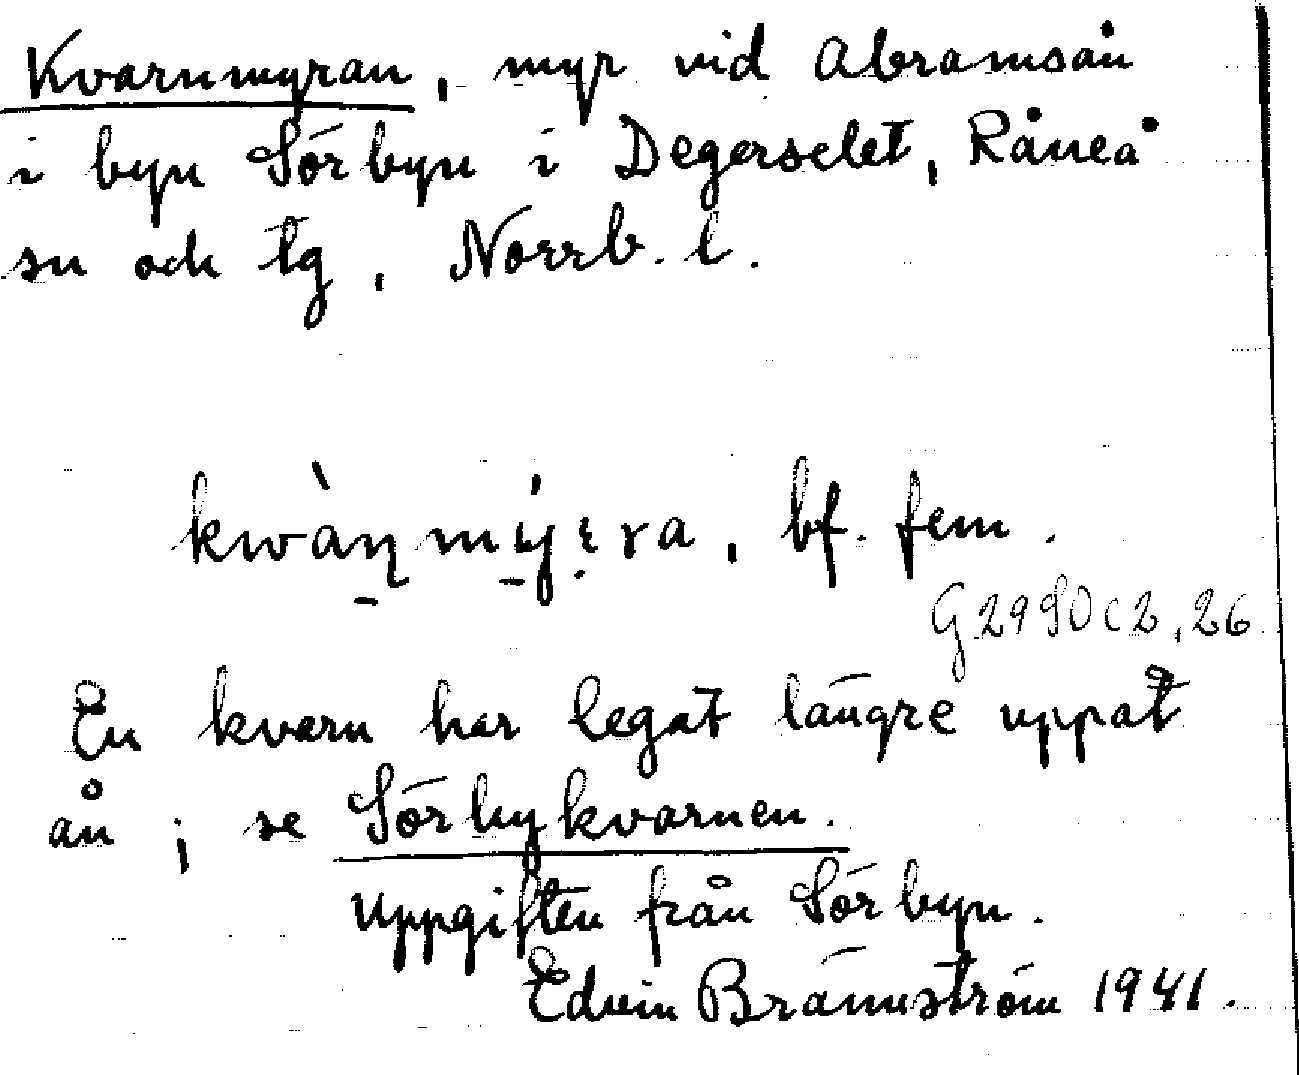 Kvarnmyran, myr vid Abramsån
i byn Sörbyn i Degerselet, Råneå
sn och tg, Norrb. l.
bf. fem.
G2990 C2, 26
En kvarn har legat längre uppåt
ån; se Sörbykvarnen.
Uppgiften från Sörbyn.
Edvin Brännström 1941.